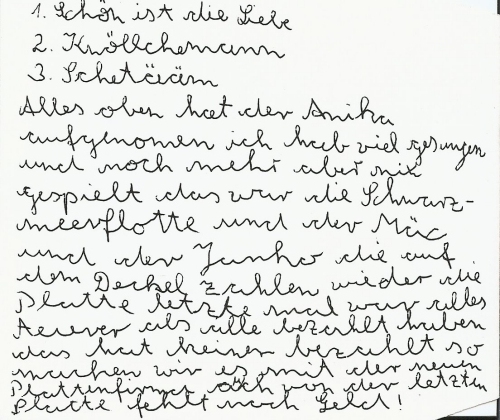 1. Schön ist die Liebe
2. Knöllchemann
3. Schetääm
Alles oben hat der Anika
aufgenomen ich hab viel gesungen
und noch mehr aber nix
gespielt das war die Schwarz-
meerflotte und der Mäx
und der Janko die auf
dem Deckel zahlen wieder die
Platte letzte mal war alles
teuerer als alle bezahlt haben
das hat keiner bezahlt so
machen wir es mit der neuen
Plattenfirma och von der letzten
Platte fehlt noch Geld!